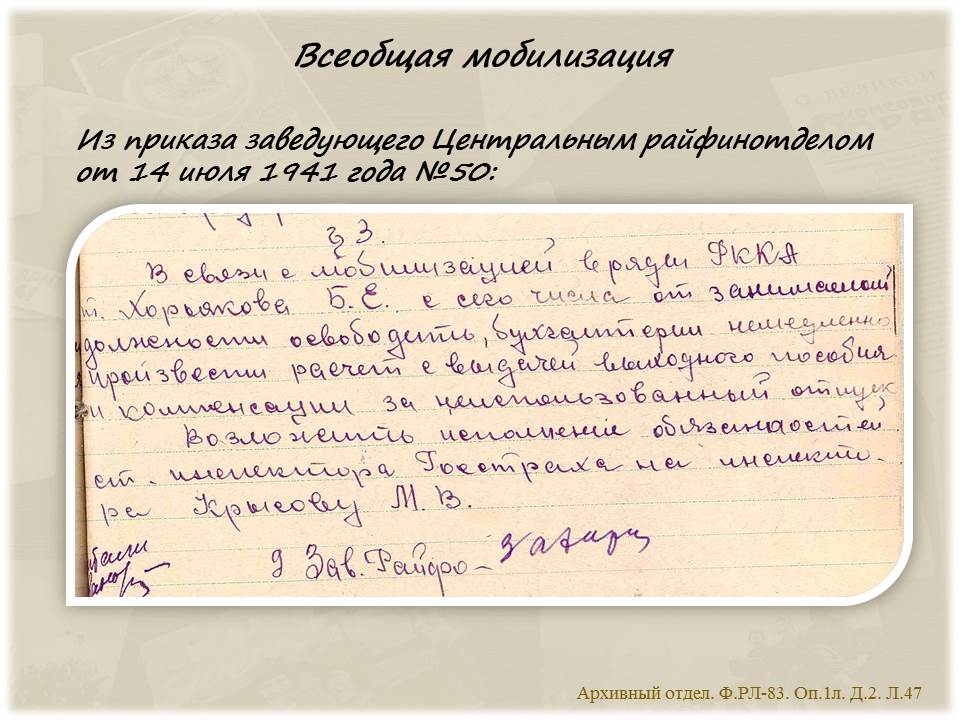 Всеобщая мобилизация
Из приказа заведующего Центральным райфинотделом
от 14 июля 1941 года №50:
§ 3.
В связи с мобилизацией в ряды РККА
т. Хорьякова Б.Е. с сего числа от занимаемой
должности освободить, бухгалтерии немедленно
произвести расчет с выдачей выходного пособия
и компенсации за неиспользованный отпуск
Возложить исполнение обязанностей
ст. инспектора Госстраха на инспекто-
ра Крысову М.В.
Зав. Райфо –
Архивный отдел. Ф.РЛ-83. Оп.1л. Д.2. Л.47